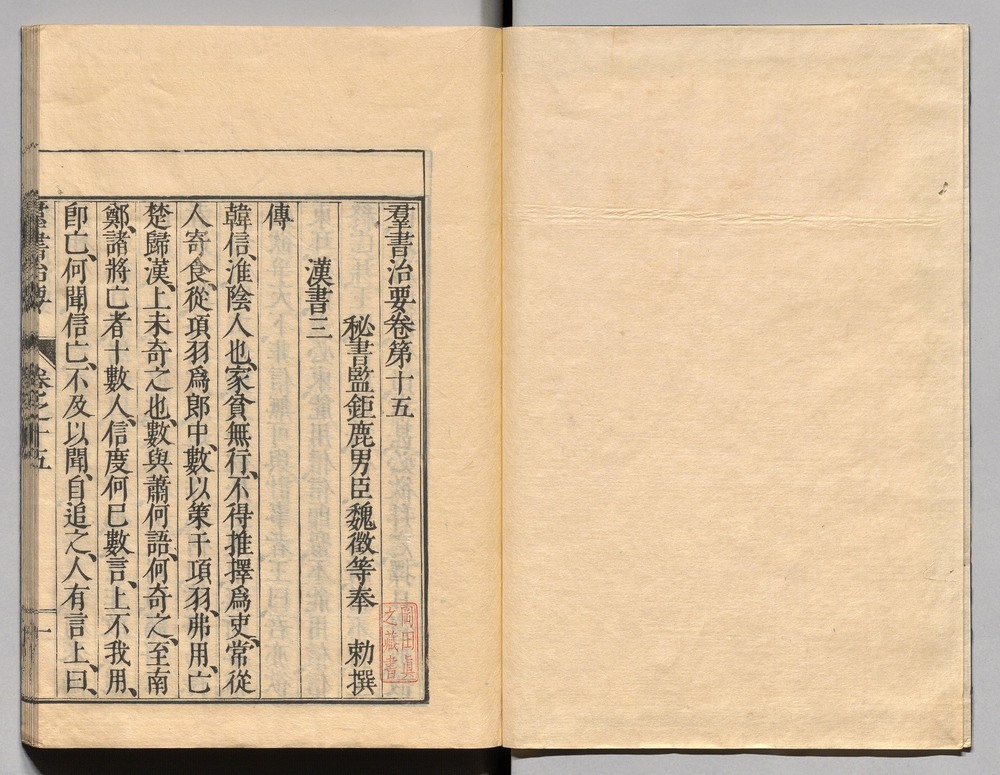 羣書治要卷第十五
秘書監鉅鹿男臣魏徵等奉　勅撰
漢書三
傳
韓信、淮陰人也、家貧無行、不得推擇爲吏、常從
人寄食、從項羽爲郎中、數以策干項羽、弗用、亡
楚歸漢、上未奇之也、數與蕭何語、何奇之、至南
鄭、諸將亡者十數人、信度何已數言、上不我用、
卽亡、何聞信亡、不及以聞、自追之、人有言上、曰、
羣書治要
卷之十五
一
岡田眞
之藏書